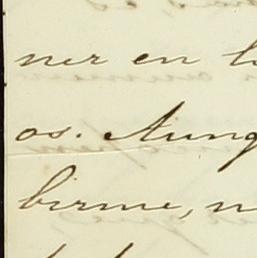 ner en
os. Aunq
birme, n